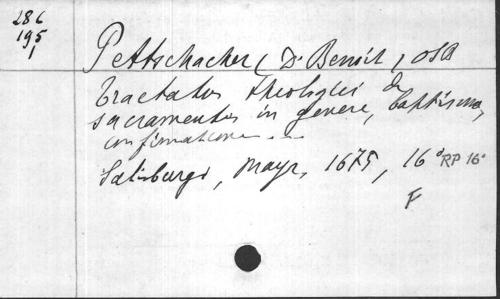 286
195
1
Pettschacher (D. Benoît) OSB
Tractatus theologici de
sacramentis in genere, baptismo,
confirmatione...
Salisburgi, Mayr, 1675, 16° RP 16°
F